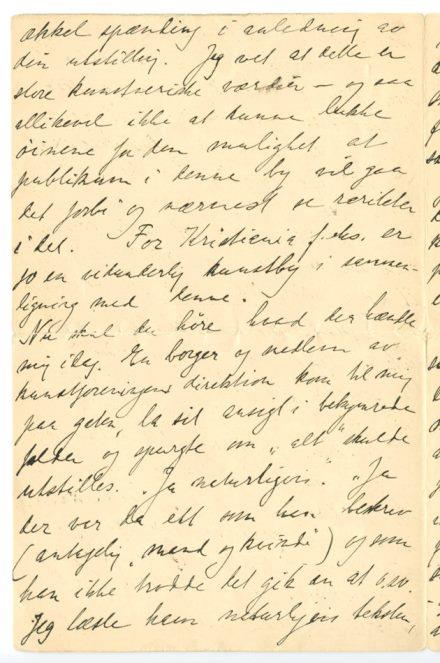 ækkel spænding i anledning av
din utstilling. Jeg vet at dette er
store kunstneriske værdier – og saa
allikevel ikke at kunne lukke
öinene for den mulighet at
publikum i denne by vil gaa
det forbi og nærmest se
i det. For Kristiania f.eks. er
jo en vidunderlig kunstby i sammen-
ligning med denne.
Nu skal du höre hvad der hændte
mig idag. En borger og medlem av
kunstforeningens direktion kom til mig
paa gaten, la sit ansigt i bekymrede
folder og spurgte om "alt" skulde
utstilles. "Ja naturligvis". "Ja
der var da ett som han beskrev
(antagelig "mand og kvinde") og som
han ikke trodde det gik an at o.s.v.
Jeg læste ham naturligvis teksten,